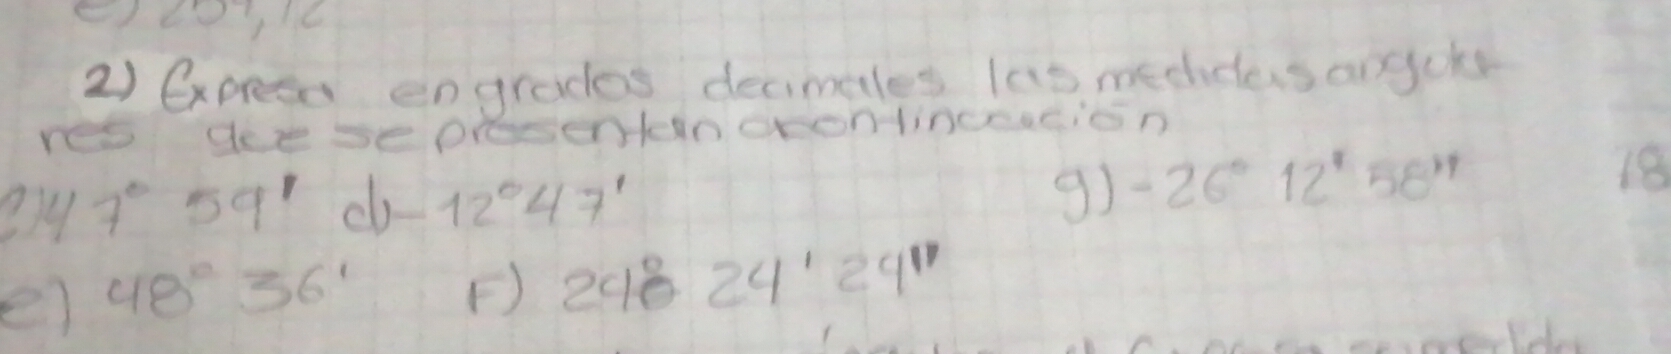 e) 259,12
2) Expresa en grados decimales las medidas angula
res que se presentan acontinuación
c) 47° 59' d) -12° 47' g) -26° 12' 58" 18
e) 48° 36' F) 248° 24' 29"